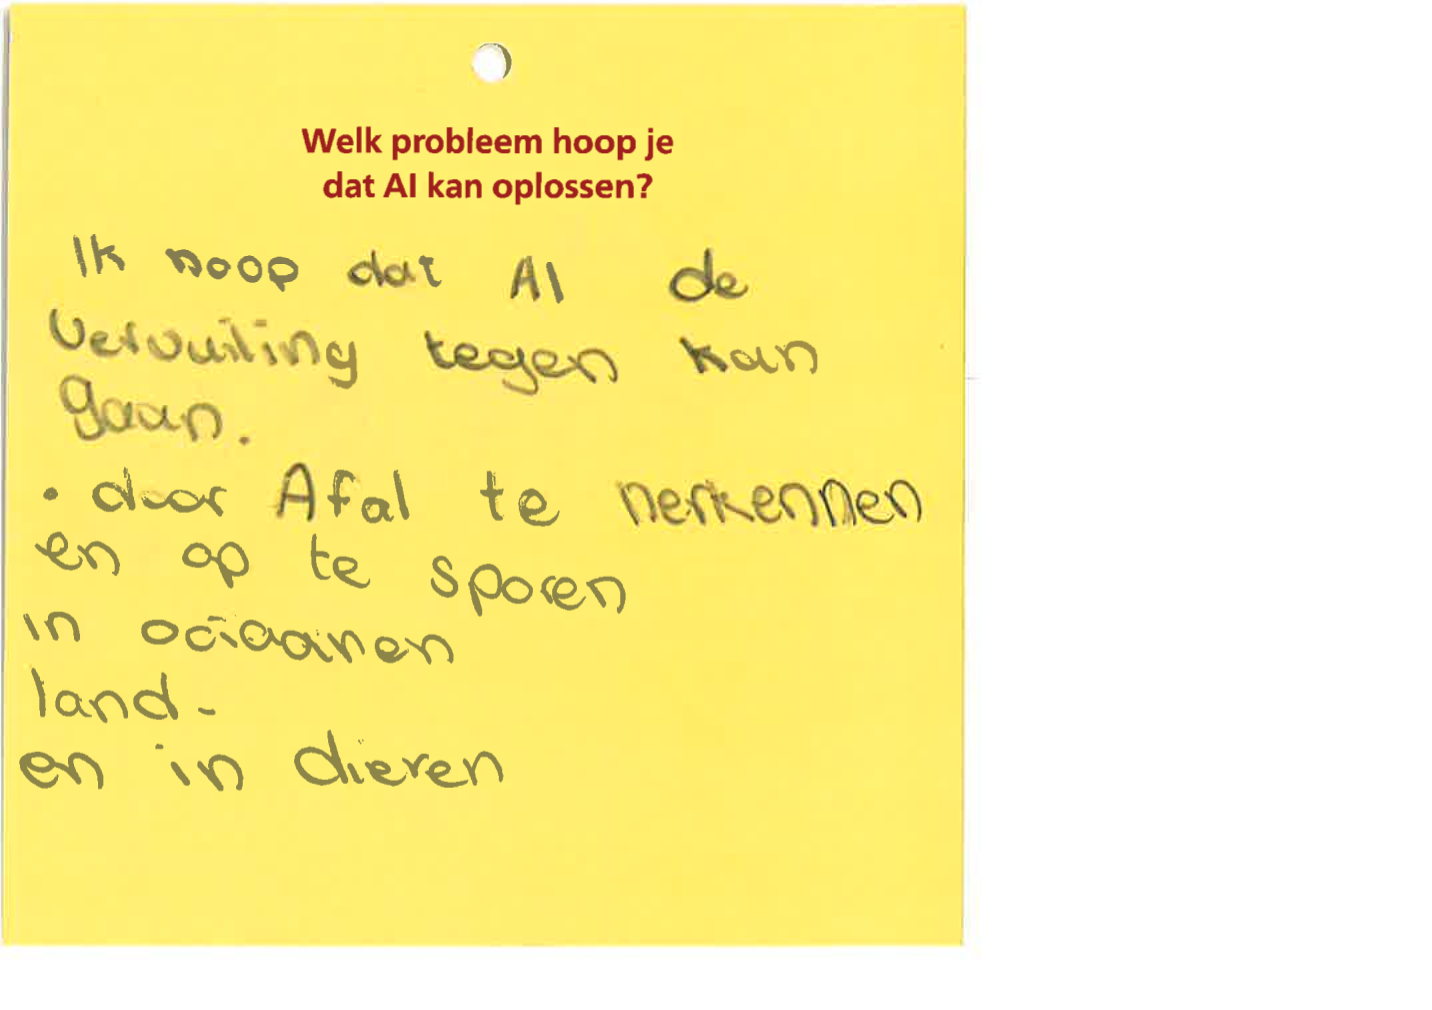 Welk probleem hoop je
dat AI kan oplossen?
Ik hoop dat AI de
vervuiling tegen kan
gaan.
• door Afal te herkennen
en op te sporen
in ociaanen
land-
en in dieren